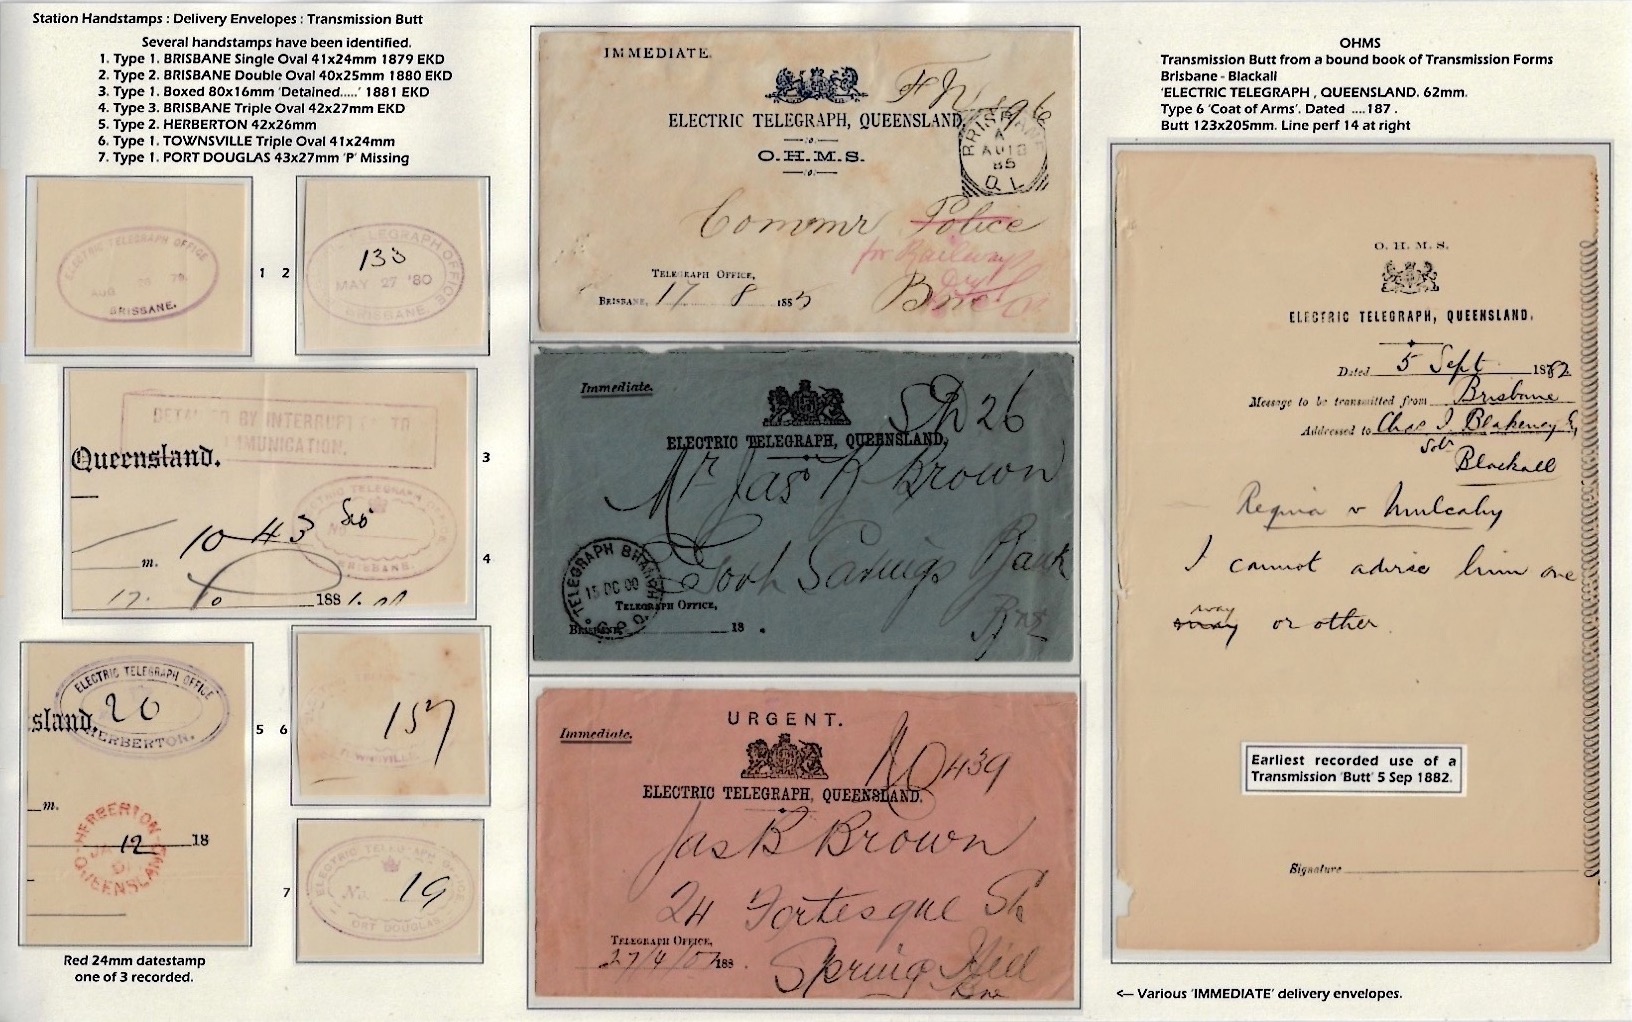 Station Handstamps : Delivery Envelopes : Transmission Butt
Several handstamps have been identified.
1. Type 1. BRISBANE Single Oval 41x24mm 1879 EKD
2. Type 2. BRISBANE Double Oval 40x25mm 1880 EKD
3. Type 1. Boxed 80x16mm 'Detained.....' 1881 EKD
4. Type 3. BRISBANE Triple Oval 42x27mm EKD
5. Type 2. HERBERTON 42x26mm
6. Type 1. TOWNSVILLE Triple Oval 41x24mm
7. Type 1. PORT DOUGLAS 43x27mm 'P' Missing
ELECTRIC TELEGRAPH OFFICE
AUG 79
BRISBANE.
1 2
TELEGRAPH OFFICE
133
MAY 27 '80
BRISBANE.
BY
MUNICATION.
Queensland.
3
TELEGRAPH
No
BRISBANE.
10 43
m.
4
17. 188
ELECTRIC TELEGRAPH OFFICE
20
sland.
HERBERTON.
m.
HERBERTON
12 18
QUEENSLAND
5 6
157
7
ELECTRIC
No. 19
ORT DOUGLAS
Red 24mm datestamp
one of 3 recorded.
IMMEDIATE.
ELECTRIC TELEGRAPH, QUEENSLAND.
O.H.M.S.
BRISBANE
A
AU 18
85
Q L
Commr Police
for Railways
TELEGRAPH OFFICE,
BRISBANE, 17 8 1885
Bne
Immediate.
26
ELECTRIC TELEGRAPH, QUEENSLAND,
Mr Jas R Brown
Govt Savings Bank
TELEGRAPH BRANCH
15 DC 00
G.P.O.
TELEGRAPH OFFICE,
BRISBANE, 18 .
URGENT.
Immediate.
439
ELECTRIC TELEGRAPH, QUEENSLAND.
Jas B Brown
24 Fortesque St
TELEGRAPH OFFICE,
27/4/07 188
Spring Hill
Bne
OHMS
Transmission Butt from a bound book of Transmission Forms
Brisbane - Blackall
'ELECTRIC TELEGRAPH , QUEENSLAND. 62mm.
Type 6 'Coat of Arms'. Dated ....187 .
Butt 123x205mm. Line perf 14 at right
O. H. M. S.
ELECTRIC TELEGRAPH, QUEENSLAND.
Dated 5 Sept 1882
Message to be transmitted from Brisbane
Addressed to Chas J. Blakeney
Solr
Blackall
Regina v Mulcahy
I cannot advise him one
way
or other
Earliest recorded use of a
Transmission 'Butt' 5 Sep 1882.
Signature
<— Various 'IMMEDIATE' delivery envelopes.